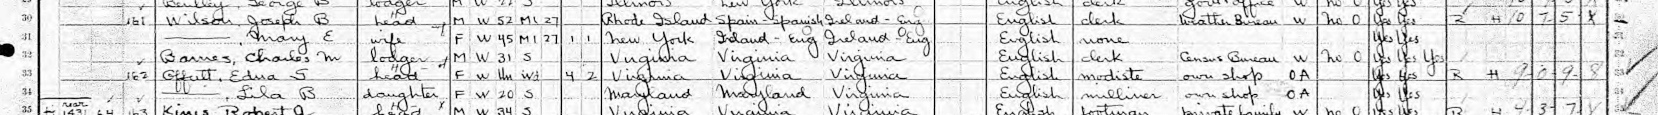 Bentley, George B lodger M W 22 S Illinois New York Illinois English clerk gov't office W no O Yes Yes
30 161 Wilson, Joseph B head M W 52 M1 27 Rhode Island Spain - Spanish Ireland - Eng English clerk Weather Bureau W no O Yes Yes R H 10 7 5 X
31 ——, Mary E wife F W 45 M1 27 1 1 New York Ireland - Eng Ireland - Eng English none Yes Yes
32 Barnes, Charles M lodger M W 31 S Virginia Virginia Virginia English clerk Census Bureau W no O Yes Yes Yes
33 162 Offutt, Edna S head F W Un Wd 4 2 Virginia Virginia Virginia English modiste own shop OA Yes Yes R H 9-0-9-8
34 ——, Lila B daughter F W 20 S Maryland Maryland Virginia English milliner own shop OA Yes Yes
35 rear 1431 64 163 King, Robert J head M W 34 S Virginia Virginia Virginia English footman private family W no O Yes Yes R H 4-3-7-X